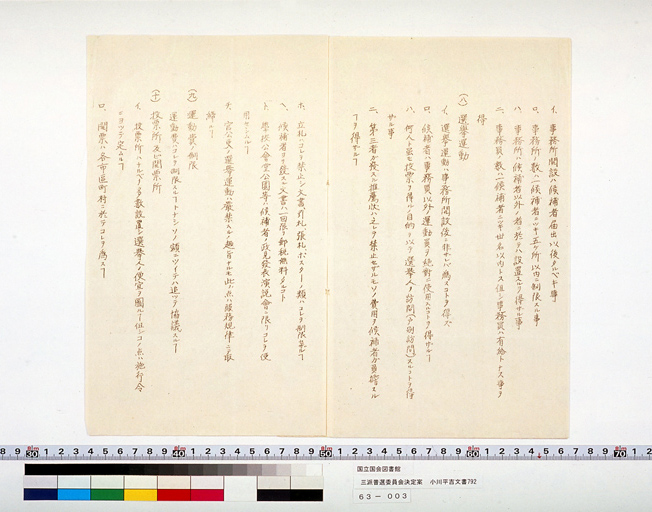 イ、事務所開設ハ候補者届出以後タルベキ事
ロ、事務所ノ数ハ候補者一人ニツキ五ケ所以内ニ制限スル事
ハ、事務所ハ候補者以外ノ者ニ於テハ設置スルヲ得ザル事
ニ、事務員ノ数ハ一候補者ニツキ廿名以内トス但シ事務員ハ有給トナス事ヲ
得
(八) 選挙運動
イ、選挙運動ハ事務所開設後ニ非サレバ為スコトヲ得ズ
ロ、候補者ハ事務員以外ノ運動員ヲ絶対ニ使用スルコトヲ得ザルー
ハ、何人ト雖モ投票ヲ得ルノ目的ヲ以テ選挙人ノ訪問(戸別訪問)スルコトヲ得
ザル事
ニ、第三者ガ発スル推薦状ハ之レヲ禁止セザルモソノ費用ヲ候補者ガ負担スル
ヿヲ得ザルー
ホ、立札ハコレヲ禁止シ文書、引札、張札、ポスターノ類ハコレヲ制限スルー
ヘ、候補者ヨリ発スル文書ハ一回限リ郵税無料タルコト
ト、学校公会堂公園等ハ候補者ノ政見発表演説会ニ限リコレヲ使
用セシムルー
チ、官公吏ノ選挙運動ハ厳禁スルノ趣旨ナルモ此ノ点ハ服務規律ニ取
締ルー
(九) 運動費ノ制限
運動費ハコレヲ制限スルートナシソノ額ニツイテハ追ツテ協議スルー
(十) 投票所及ビ開票所
イ、投票所ハナルベク多数設置シ選挙人ノ便宜ヲ図ルー但シコノ点ハ施行令
ニヨツテ定ムルー
ロ、開票ハ各市区町村ニ於テコレヲ為スー
国立国会図書館
三派普選委員会決定案 小川平吉文書792
63-003